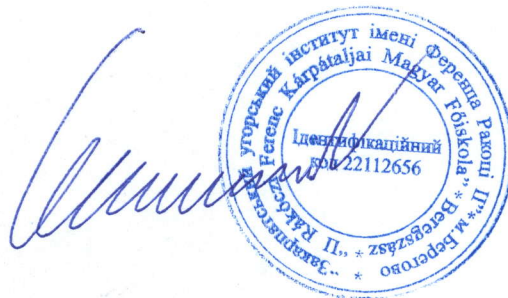 "Закарпатський угорський інститут імені Ференца Ракоці ІІ" * м.Берегово *
"II Rákóczi Ferenc Kárpátaljai Magyar Főiskola" * Beregszász *
Ідентифікаційний
код 22112656